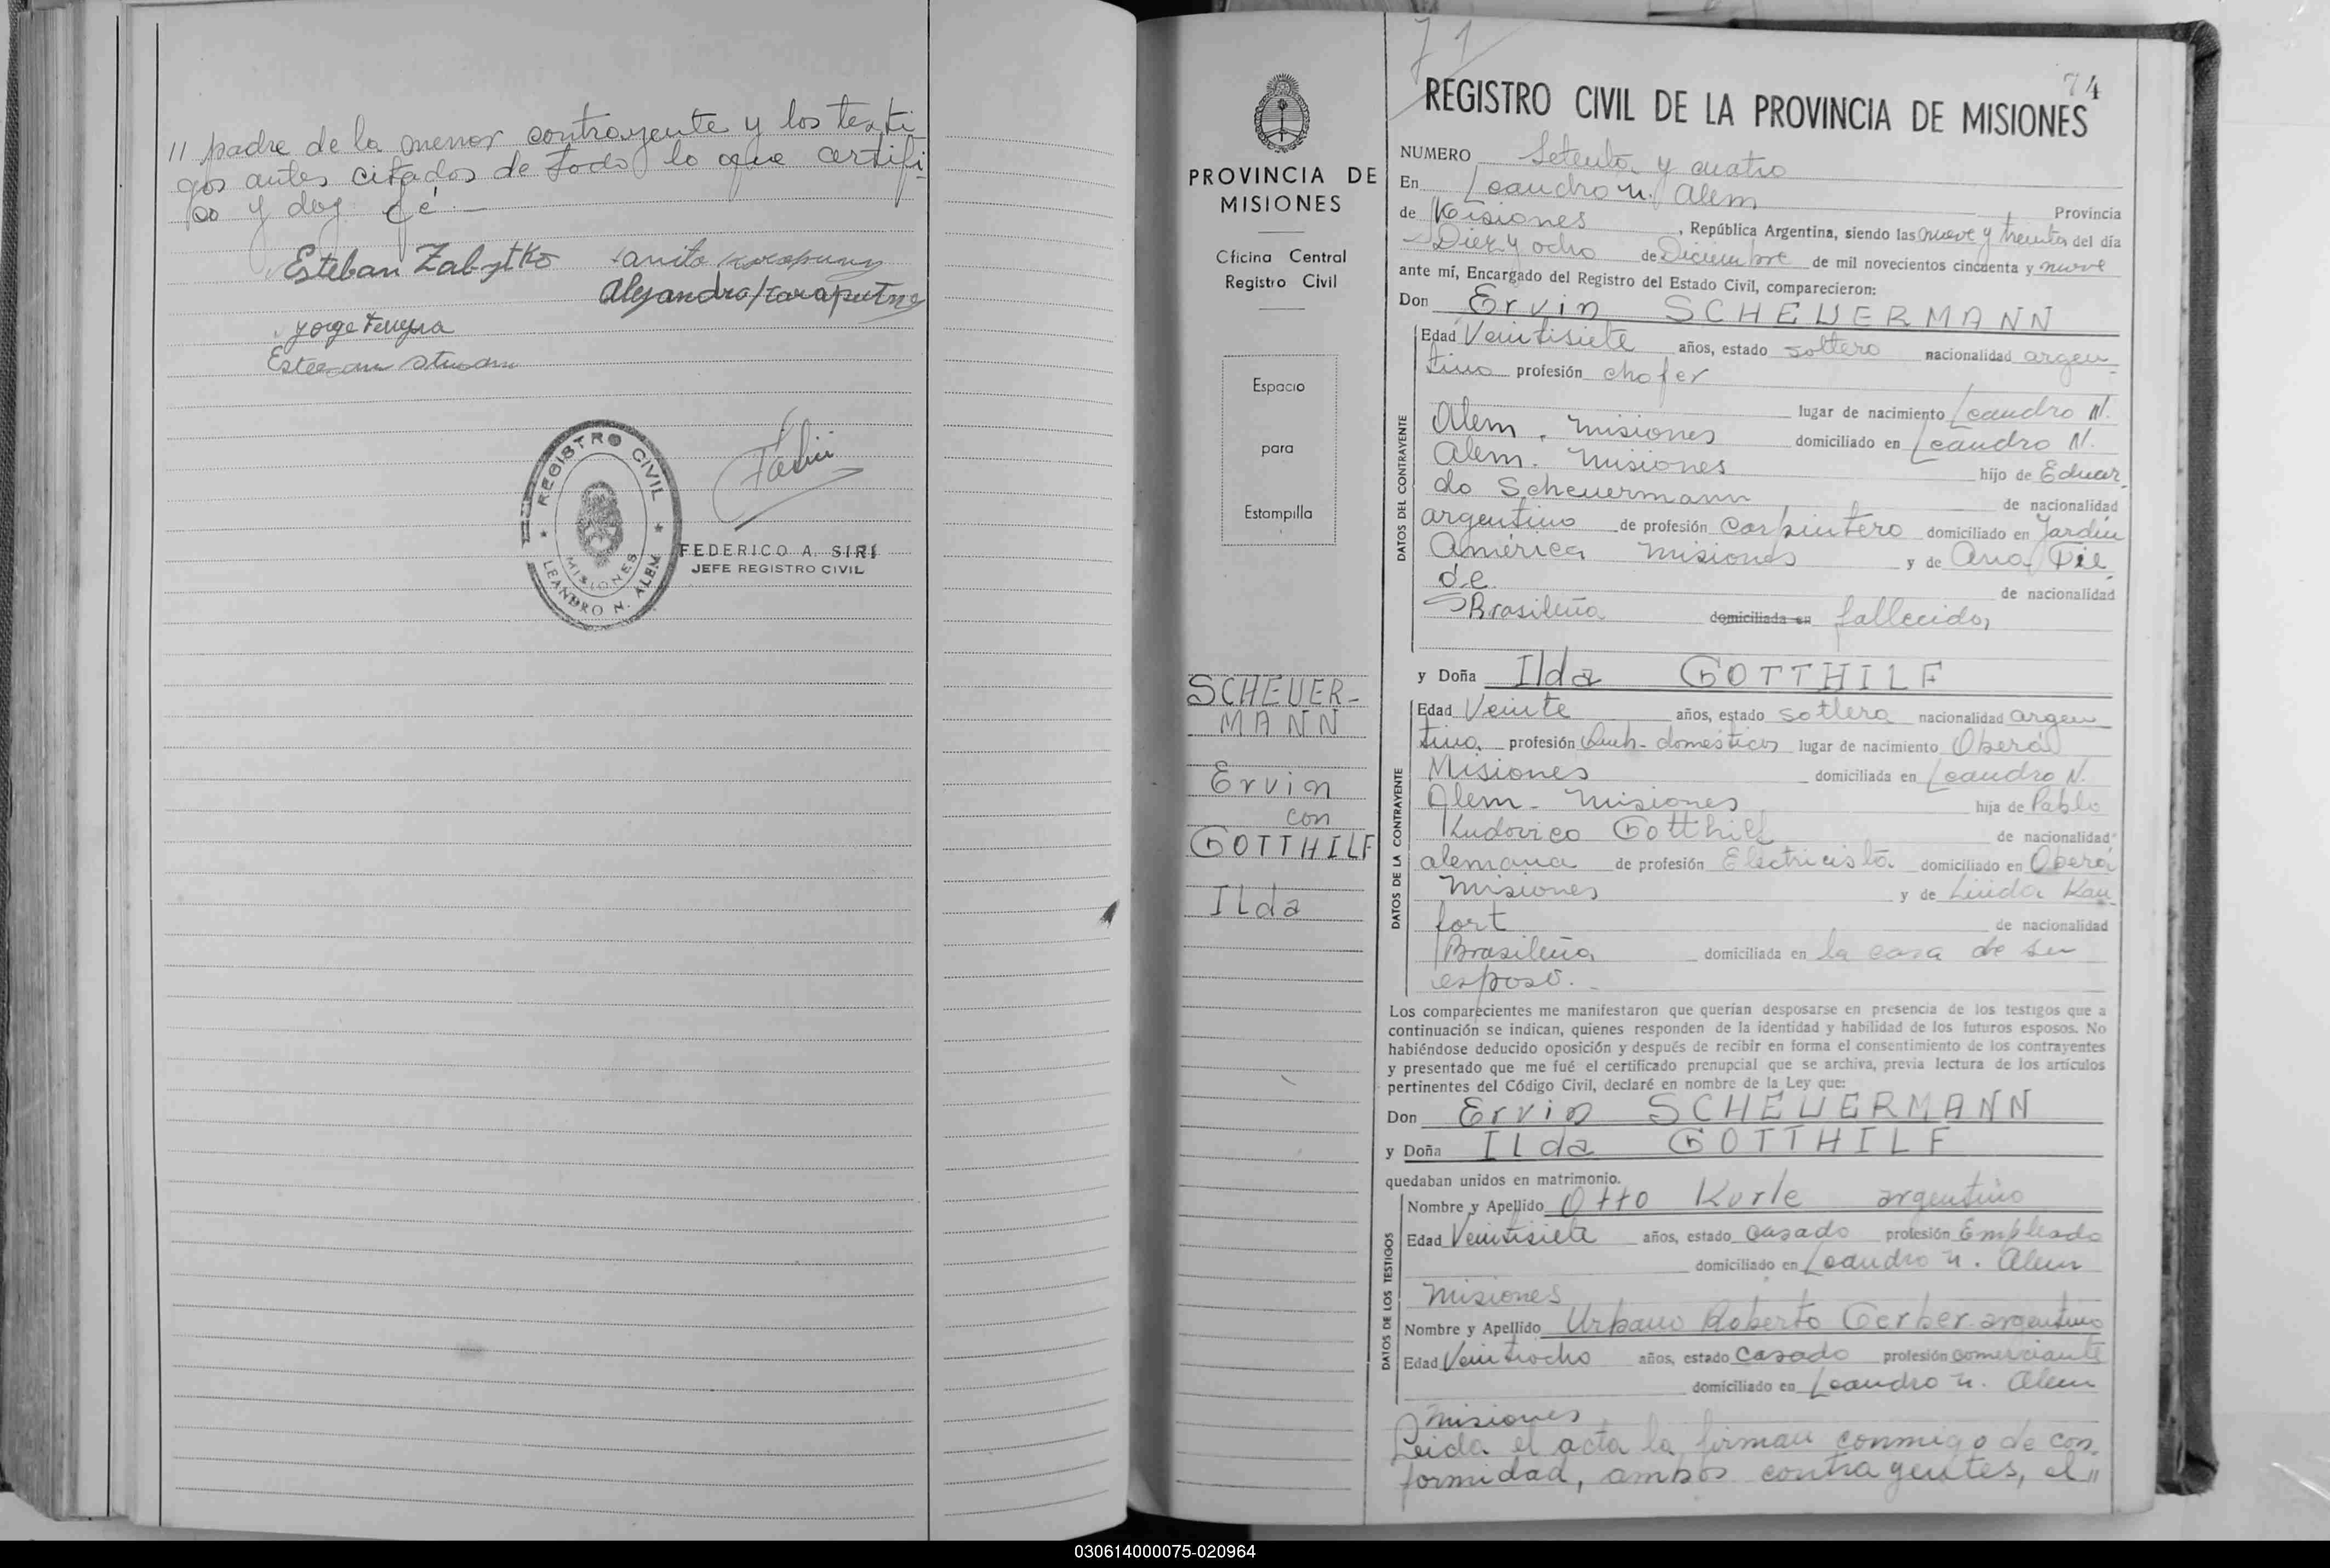 // padre de la menor contrayente y los testi
gos antes citados de todo lo que certifi-
co y doy fé.—
Esteban Zabytko
Alejandro
Jorge Ferreyra
REGISTRO CIVIL
MISIONES
LEANDRO N. ALEM
FEDERICO A. SIRI
JEFE REGISTRO CIVIL
PROVINCIA DE
MISIONES
Oficina Central
Registro Civil
Espacio
para
Estampilla
SCHEUER-
MANN
Ervin
con
GOTTHILF
Ilda
71
74
REGISTRO CIVIL DE LA PROVINCIA DE MISIONES
NUMERO Setenta y cuatro
En Leandro N. Alem
Provincia
de Misiones, República Argentina, siendo las nueve y treinta del día
Diez y ocho de Diciembre de mil novecientos cincuenta y nueve
ante mí, Encargado del Registro del Estado Civil, comparecieron:
Don Ervin SCHEUERMANN
DATOS DEL CONTRAYENTE
Edad Veintisiete años, estado soltero nacionalidad argen-
tino profesión chofer
lugar de nacimiento Leandro N.
Alem. Misiones domiciliado en Leandro N.
Alem. Misiones hijo de Eduar
do Scheuermann de nacionalidad
argentino de profesión carpintero domiciliado en Jardín
América Misiones y de Ana
de nacionalidad
Brasileña domiciliada en fallecida
y Doña Ilda GOTTHILF
DATOS DE LA CONTRAYENTE
Edad Veinte años, estado soltera nacionalidad argen
tina profesión Queh-domésticos lugar de nacimiento Oberá
Misiones domiciliada en Leandro N.
Alem - Misiones hija de Pablo
Ludovico Gotthilf de nacionalidad
alemana de profesión Electricista domiciliado en Oberá
Misiones y de Linda Kau
fort de nacionalidad
Brasileña domiciliada en la casa de su
esposo.-
Los comparecientes me manifestaron que querían desposarse en presencia de los testigos que a
continuación se indican, quienes responden de la identidad y habilidad de los futuros esposos. No
habiéndose deducido oposición y después de recibir en forma el consentimiento de los contrayentes
y presentado que me fué el certificado prenupcial que se archiva, previa lectura de los artículos
pertinentes del Código Civil, declaré en nombre de la Ley que:
Don Ervin SCHEUERMANN
y Doña Ilda GOTTHILF
quedaban unidos en matrimonio.
DATOS DE LOS TESTIGOS
Nombre y Apellido Otto Kurle argentino
Edad Veintisiete años, estado casado profesión Empleado
domiciliado en Leandro N. Alem
Misiones
Nombre y Apellido Urbano Roberto Gerber argentino
Edad Veintiocho años, estado casado profesión comerciante
domiciliado en Leandro N. Alem
Misiones
Leida el acta la firman conmigo de con-
formidad, ambos contrayentes, el //
030614000075-020964